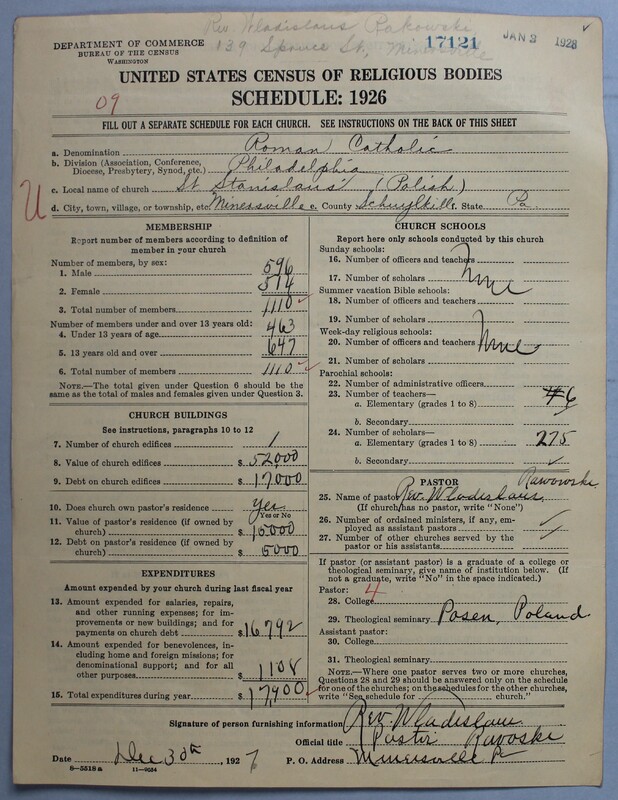 Rev. Wladislaus Rakowski
139 Spruce St, Minersville
17121
JAN 3 1928
DEPARTMENT OF COMMERCE
BUREAU OF THE CENSUS
WASHINGTON
UNITED STATES CENSUS OF RELIGIOUS BODIES
SCHEDULE: 1926
09
FILL OUT A SEPARATE SCHEDULE FOR EACH CHURCH. SEE INSTRUCTIONS ON THE BACK OF THIS SHEET
a. Denomination Roman Catholic
b. Division (Association, Conference, Diocese, Presbytery, Synod, etc.) Philadelphia
c. Local name of church St. Stanislaus' (Polish)
U
d. City, town, village, or township, etc. Minersville e. County Schuylkill f. State Pa.
MEMBERSHIP
Report number of members according to definition of
member in your church
Number of members, by sex:
1. Male 596
2. Female 514
3. Total number of members 1110
Number of members under and over 13 years old:
4. Under 13 years of age 463
5. 13 years old and over 647
6. Total number of members 1110
NOTE.—The total given under Question 6 should be the
same as the total of males and females given under Question 3.
CHURCH BUILDINGS
See instructions, paragraphs 10 to 12
7. Number of church edifices 1
8. Value of church edifices $ 52,000
9. Debt on church edifices $ 17000
10. Does church own pastor's residence? Yes
Yes or No
11. Value of pastor's residence (if owned by
church) $ 15000
12. Debt on pastor's residence (if owned by
church) $ 5000
EXPENDITURES
Amount expended by your church during last fiscal year
13. Amount expended for salaries, repairs,
and other running expenses; for im-
provements or new buildings; and for
payments on church debt $ 16,792
14. Amount expended for benevolences, in-
cluding home and foreign missions; for
denominational support; and for all
other purposes $ 1108
15. Total expenditures during year $ 17,900
CHURCH SCHOOLS
Report here only schools conducted by this church
Sunday schools:
16. Number of officers and teachers
17. Number of scholars None
Summer vacation Bible schools:
18. Number of officers and teachers
19. Number of scholars
Week-day religious schools:
20. Number of officers and teachers None
21. Number of scholars
Parochial schools:
22. Number of administrative officers
23. Number of teachers—
a. Elementary (grades 1 to 8) 6
b. Secondary
24. Number of scholars—
a. Elementary (grades 1 to 8) 275
b. Secondary
PASTOR
25. Name of pastor Rev. Wladislaus
(If church has no pastor, write "None")
26. Number of ordained ministers, if any, em-
ployed as assistant pastors
27. Number of other churches served by the
pastor or his assistants
If pastor (or assistant pastor) is a graduate of a college or
theological seminary, give name of institution below. (If
not a graduate, write "No" in the space indicated.)
Pastor: 4
28. College
29. Theological seminary Posen, Poland
Assistant pastor:
30. College
31. Theological seminary
NOTE.—Where one pastor serves two or more churches,
Questions 28 and 29 should be answered only on the schedule
for one of the churches; on the schedules for the other churches,
write "See schedule for church."
Signature of person furnishing information Rev. Wladislaus
Official title Pastor
Date Dec 30th, 1927 P. O. Address Minersville Pa
8—5518 a 11—9034